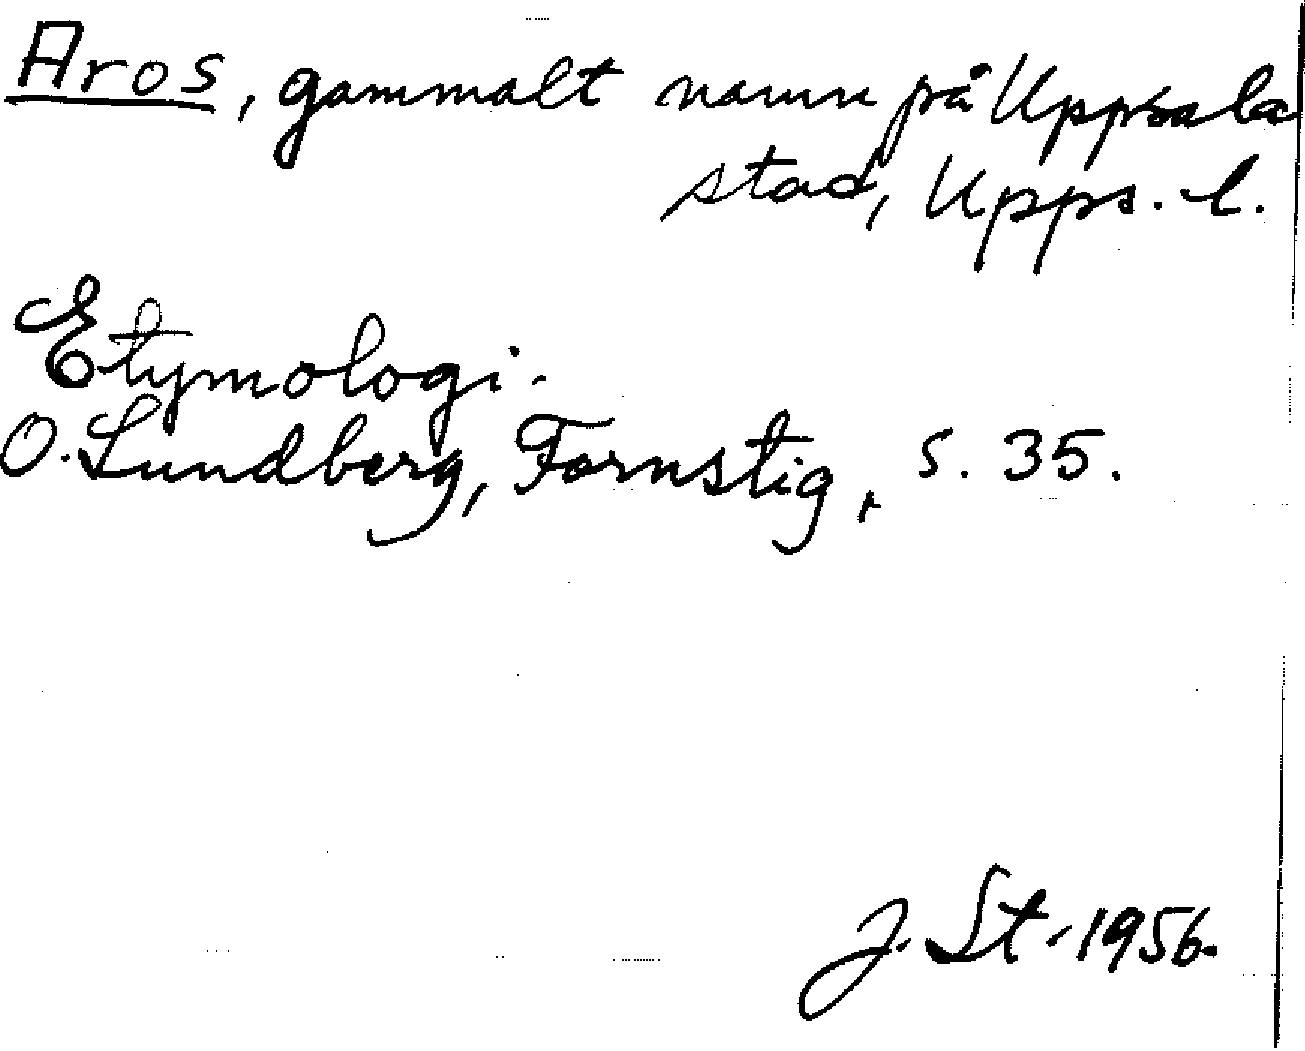 Aros, gammalt namn på Uppsala
stad, Upps. l.
Etymologi.
O. Lundberg, Fornstig, s. 35.
J. St. 1956.